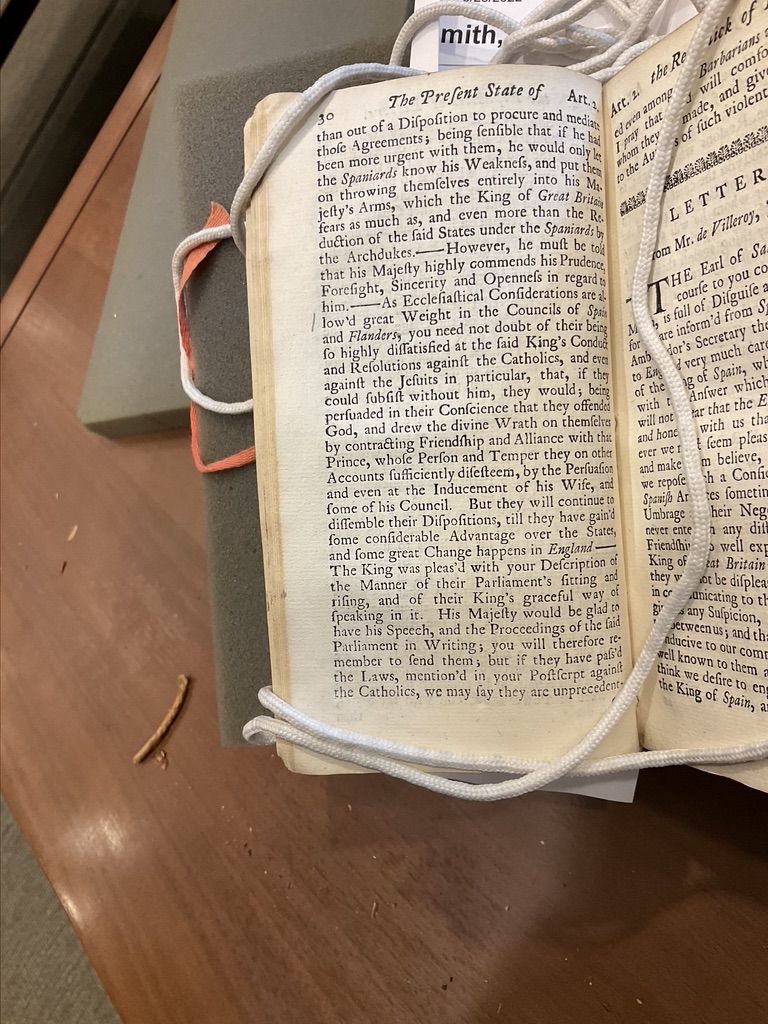 mith,
30 The Preſent State of Art. 2.
than out of a Diſpoſition to procure and mediate
thoſe Agreements; being ſenſible that if he had
been more urgent with them, he would only let
the Spaniards know his Weakneſs, and put them
on throwing themſelves entirely into his Ma-
jeſty's Arms, which the King of Great Britain
fears as much as, and even more than the Re-
duction of the ſaid States under the Spaniards by
the Archdukes.——However, he muſt be told
that his Majeſty highly commends his Prudence,
Foreſight, Sincerity and Openneſs in regard to
him.——As Eccleſiaſtical Conſiderations are al-
low'd great Weight in the Councils of Spain
and Flanders, you need not doubt of their being
ſo highly diſſatisfied at the ſaid King's Conduct
and Reſolutions againſt the Catholics, and even
againſt the Jeſuits in particular, that, if they
could ſubſiſt without him, they would; being
perſuaded in their Conſcience that they offended
God, and drew the divine Wrath on themſelves
by contracting Friendſhip and Alliance with that
Prince, whoſe Perſon and Temper they on other
Accounts ſufficiently diſeſteem, by the Perſuaſion
and even at the Inducement of his Wife, and
ſome of his Council. But they will continue to
diſſemble their Diſpoſitions, till they have gain'd
ſome conſiderable Advantage over the States,
and ſome great Change happens in England——
The King was pleas'd with your Deſcription of
the Manner of their Parliament's ſitting and
riſing, and of their King's graceful way of
ſpeaking in it. His Majeſty would be glad to
have his Speech, and the Proceedings of the ſaid
Parliament in Writing; you will therefore re-
member to ſend them; but if they have paſs'd
the Laws, mention'd in your Poſtſcript againſt
the Catholics, we may ſay they are unprecedent-
Art. 2. the Re ick of
ed even among Barbarians
I pray that will comfo
whom they made, and give
to the Au s of ſuch violent
LETTER
om Mr. de Villeroy,
THE Earl of Sa
courſe to you co
is full of Diſguiſe a
for are inform'd from Sp
Amb dor's Secretary the
to En d very much care
of the ng of Spain, wh
with t Anſwer which
will not ear that the E
and hono with us tha
ever we r t ſeem pleas
and make m believe,
we repoſe h a Confi
Spaniſh Ar ces ſometim
Umbrage heir Neg
never enter any diff
Friendſhip o well exp
King of eat Britain
they w ot be diſplea
in co nicating to th
gi any Suſpicion,
between us; and th
nducive to our comm
well known to them a
think we deſire to eng
the King of Spain, a